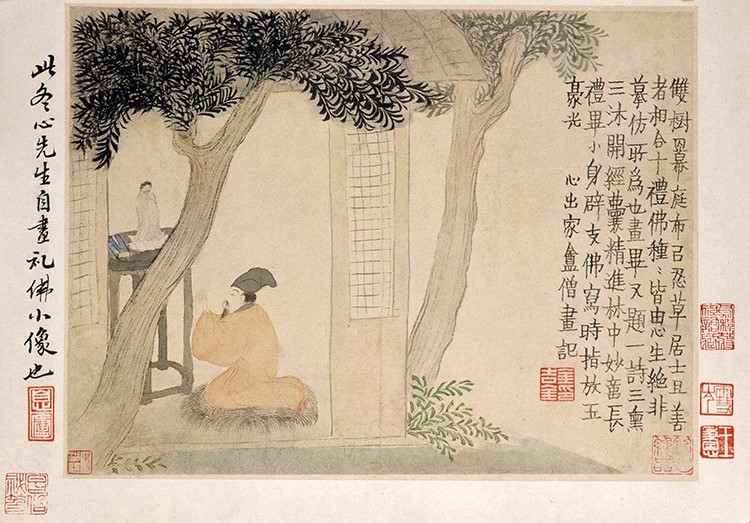 雙樹庭布㠯忍草居士且善
者相合十禮佛種〻皆由心生絕非
摹仿所為也畫畢又題一詩三熏
三沐開經囊精進林中妙長
禮畢小身辟支佛寫時指放玉
豪光 心出家盦僧畫記
此冬心先生自畫礼佛小像也